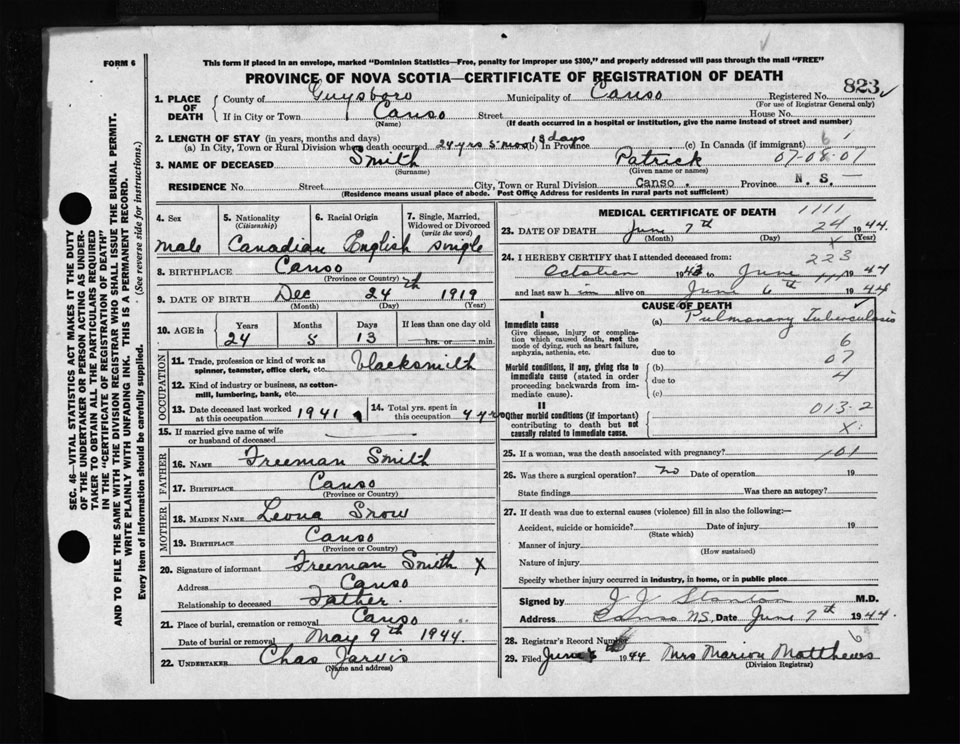 FORM 6
This form if placed in an envelope, marked "Dominion Statistics—Free, penalty for improper use $300," and properly addressed will pass through the mail "FREE"
PROVINCE OF NOVA SCOTIA—CERTIFICATE OF REGISTRATION OF DEATH
823
1. PLACE OF DEATH
County of Guysboro Municipality of Canso Registered No.
(For use of Registrar General only)
If in City or Town Canso Street House No.
(Name) (If death occurred in a hospital or institution, give the name instead of street and number)
2. LENGTH OF STAY (in years, months and days)
(a) In City, Town or Rural Division where death occurred 24 yrs 5 mos 13 days (b) In Province (c) In Canada (if immigrant)
6 1
3. NAME OF DECEASED Smith Patrick 07-08-01
(Surname) (Given name or names)
RESIDENCE No. Street City, Town or Rural Division Canso. Province N. S.—
(Residence means usual place of abode. Post Office Address for residents in rural parts not sufficient)
4. Sex male
5. Nationality (Citizenship) Canadian
6. Racial Origin English
7. Single, Married, Widowed or Divorced (write the word) single
8. BIRTHPLACE Canso
(Province or Country)
9. DATE OF BIRTH Dec 24th 1919
(Month) (Day) (Year)
10. AGE in Years 24 Months 5 Days 13 If less than one day old hrs. or min.
OCCUPATION
11. Trade, profession or kind of work as spinner, teamster, office clerk, etc. blacksmith
12. Kind of industry or business, as cotton-mill, lumbering, bank, etc.
13. Date deceased last worked at this occupation 1941
14. Total yrs. spent in this occupation 4 yrs
15. If married give name of wife or husband of deceased
FATHER
16. NAME Freeman Smith
17. BIRTHPLACE Canso
(Province or Country)
MOTHER
18. MAIDEN NAME Leona Snow
19. BIRTHPLACE Canso
(Province or Country)
20. Signature of informant Freeman Smith X
Address Canso
Relationship to deceased Father.
21. Place of burial, cremation or removal Canso
Date of burial or removal May 9th 1944.
22. UNDERTAKER Chas Jarvis
(Name and address)
MEDICAL CERTIFICATE OF DEATH 1111
23. DATE OF DEATH June 7th 24 1944
(Month) (Day) (Year)
X
24. I HEREBY CERTIFY that I attended deceased from:
223
October 1943 to June 1944
and last saw him alive on June 6th 1944
CAUSE OF DEATH
I
Immediate cause (a) Pulmonary Tuberculosis
Give disease, injury or complication which caused death, not the mode of dying, such as heart failure, asphyxia, asthenia, etc.
due to
6
Morbid conditions, if any, giving rise to immediate cause (stated in order proceeding backwards from immediate cause).
(b) 07
due to 4
(c)
II
Other morbid conditions (if important) contributing to death but not causally related to immediate cause.
013-2
X
25. If a woman, was the death associated with pregnancy? 101
26. Was there a surgical operation? no Date of operation 19
State findings Was there an autopsy?
27. If death was due to external causes (violence) fill in also the following:—
Accident, suicide or homicide? Date of injury 19
(State which)
Manner of injury
(How sustained)
Nature of injury
Specify whether injury occurred in industry, in home, or in public place
Signed by J J Stanton M.D.
Address Canso NS. Date June 7th 1944.
28. Registrar's Record Number 6
29. Filed June 1944 Mrs Marion Matthews
(Division Registrar)
SEC. 46—VITAL STATISTICS ACT MAKES IT THE DUTY
OF THE UNDERTAKER OR PERSON ACTING AS UNDER-
TAKER TO OBTAIN ALL THE PARTICULARS REQUIRED
IN THE "CERTIFICATE OF REGISTRATION OF DEATH"
AND TO FILE THE SAME WITH THE DIVISION REGISTRAR WHO SHALL ISSUE THE BURIAL PERMIT.
WRITE PLAINLY WITH UNFADING INK. THIS IS A PERMANENT RECORD.
Every item of information should be carefully supplied. (See reverse side for instructions.)